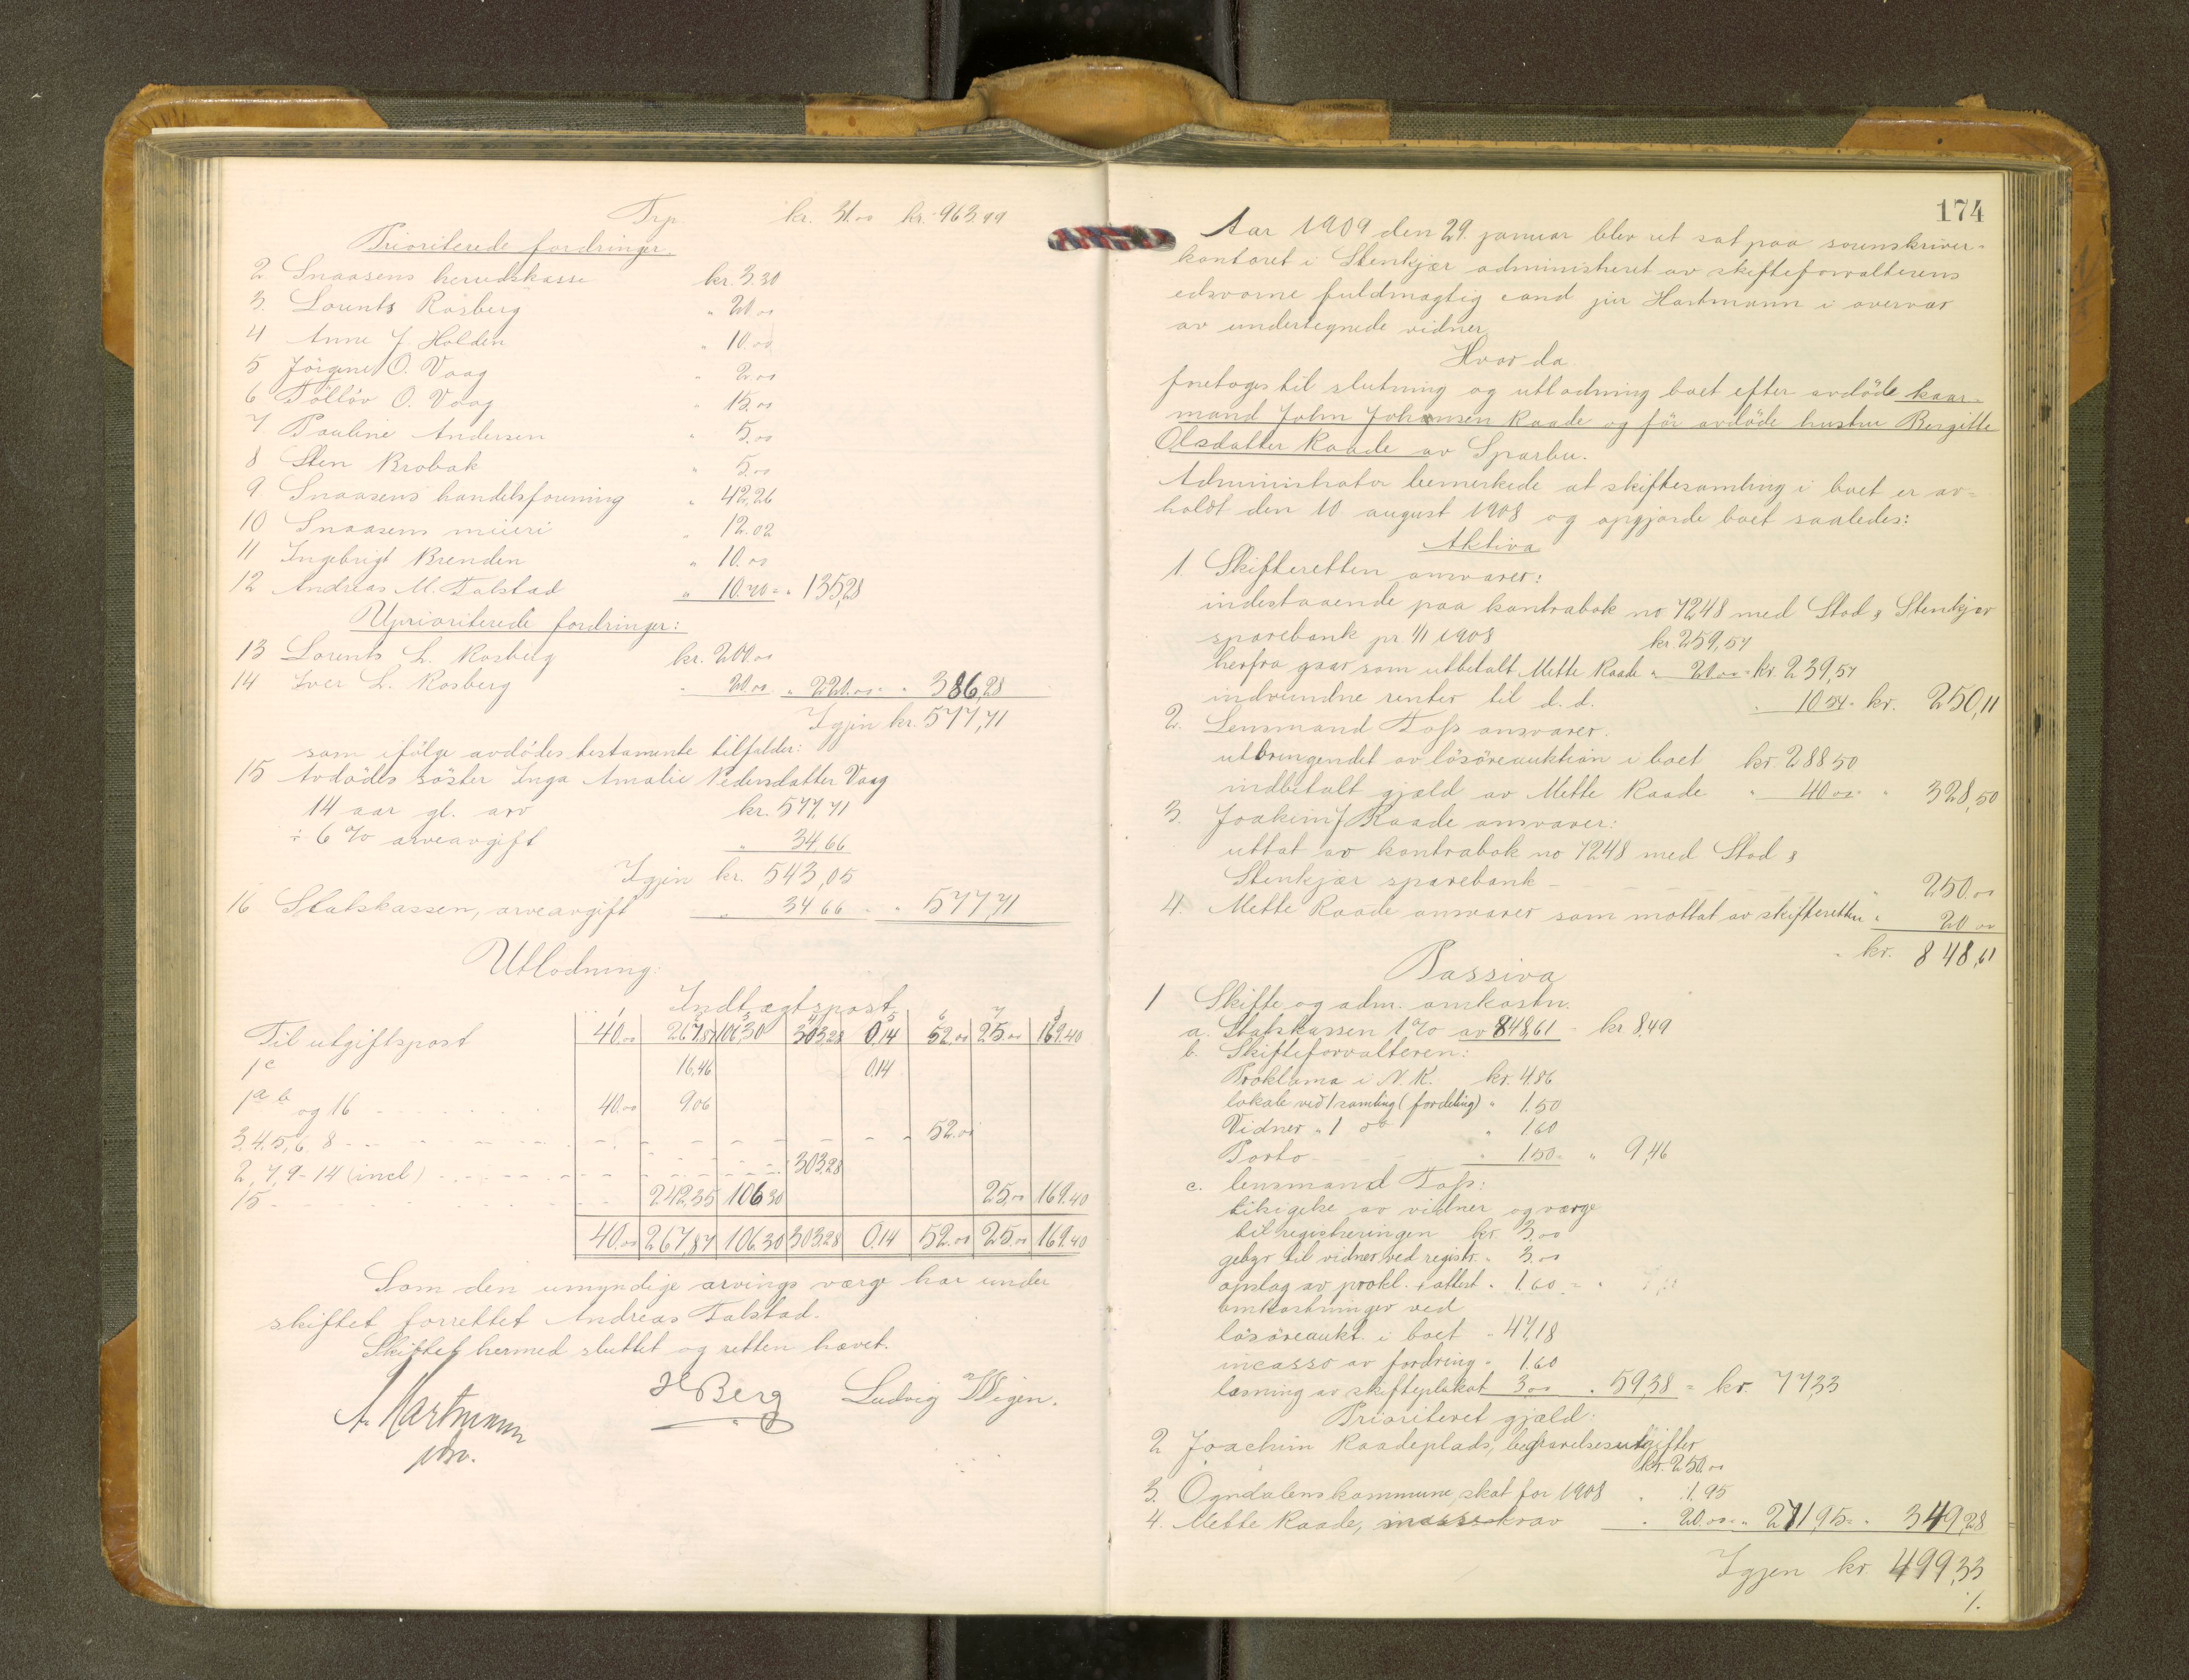 Trp. kr. 31.00 kr. 963.99
Prioriterede fordringer.
2 Snaasens herredskasse kr. 3.30
3. Lorents Rosberg " 20.00
4 Anne J. Holden " 10.00
5 Jörgine O. Vaag " 2.00
6 Töllöv O. Vaag " 15.00
7 Pauline Andersen " 5.00
8 Sten Brobak " 5.00
9 Snaasens handelsforening " 42,26
10 Snaasens miieri " 12.02
11 Ingebrigt Brenden " 10.00
12 Andreas M. Talstad " 10.70 = " 135,28
Uprioriterede fordringer:
13 Lorents L. Rosberg kr. 200.00
14 Iver L. Rosberg " 20.00 " 220.00 = " 386,28
Igjen kr. 577,71
som ifölge avdödes testamente tilfalder:
15 Avdödes söster Inga Amalie Pedersdatter Vaag
14 aar gl. arv kr. 577,71
÷ 6 % arveavgift " 34,66
Igjen kr. 543,05
16 Statskassen, arveavgift " 34 66 = " 577,71
Utlodning:
Indtægtspost
1 2 3 4 5 6 7 8
Til utgiftspost 40.00 267,87 106,30 303,28 0,14 52.00 25.00 169.40
1c 16,46 0.14
1a b og 16 40.00 9.06
3, 4, 5, 6, 8 52.00
2, 7, 9-14 (incl) 303.28
15 242,35 106 30 25,00 169.40
40.00 267,87 106.30 303,28 0,14 52.00 25.00 169.40
Som den umyndige arvings værge har under
skiftet forrettet Andreas Talstad.
Skiftet hermed sluttet og retten hævet.
A. Hartmann HBerg Ludvig Wigen.
174
Aar 1909 den 29. januar blev ret sat paa sorenskriver-
kontoret i Stenkjær administreret av skifteforvalterens
edsvorne fuldmægtig cand jur Hartmann i overvær
av undertegnede vidner
Hvor da
foretoges til slutning og utlodning boet efter avdöde kaar-
mand John Johansen Raade og för avdöde hustru Bergitte
Olsdatter Raade av Sparbu.
Administrator bemerkede at skiftesamling i boet er av-
holdt den 10 august 1908 og opgjorde boet saaledes:
Aktiva
1. Skifteretten ansvarer:
indestaaende paa kontrabok no 7248 med Stod & Stenkjær
sparebank pr 1/1 1908 kr. 259,57
herfra gaar som utbetalt Mette Raade " 20.00 = kr. 239,57
indvundne renter til d. d. " 10 54 = kr. 250,11
2. Lensmand Foss ansvarer:
utbringendet av lösöreauktion i boet kr. 288 50
indbetalt gjæld av Mette Raade " 40.00 = " 328,50
3. Joakim J Raade ansvarer:
uttat av kontrabok no 7248 med Stod &
Stenkjær sparebank " 250.00
4. Mette Raade ansvarer som mottat av skifteretten " 20 00
kr. 848,61
Passiva
1 Skifte og adm. omkostn.
a. Statskassen 1 % av 848,61 = kr 8,49
b. Skifteforvalteren:
Proklama i N. K. kr. 4.86
lokale ved 1 samling (fordeling) " 1.50
Vidner " 1 do " 1.60
Porto " 1.50 = " 9,46
c. lensmand Foss:
til registreringen kr. 3.00
gebyr til vidner ved registr. " 3.00
opslag av prokl. + attest " 1.60 = "
omkostninger ved
lösöreaukt. i boet " 47,18
incasso av fordring " 1.60
læsning av skifteplakat 3.00 " 59,38 = kr. 77,33
Prioriteret gjæld:
2 Joachim Raadeplads, begravelsesutgifter
kr. 250.00
3. Ogndalens kommune, skat for 1908 " 1.95
4. Mette Raade, massekrav " 20.00 = " 271,95 = " 349,28
Igjen kr. 499,33
./.